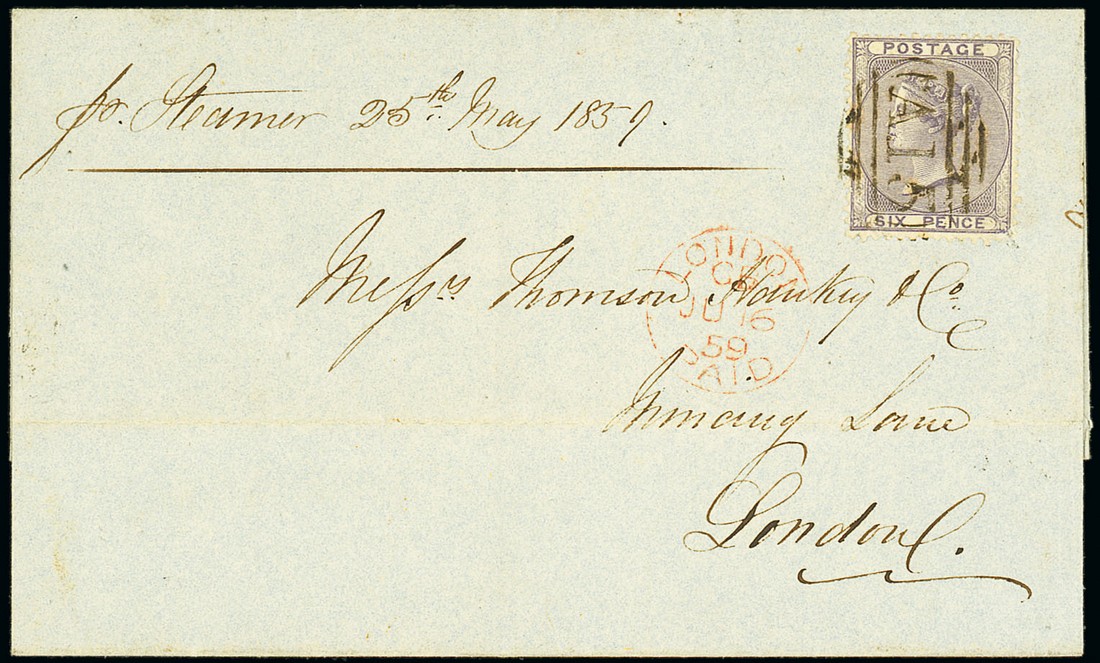 POSTAGE
pr. Steamer 25th May 1859.
SIX PENCE
LONDON
JU 16
59
PAID
Messrs Thomson Hankey & Co.
Mincing Lane
London